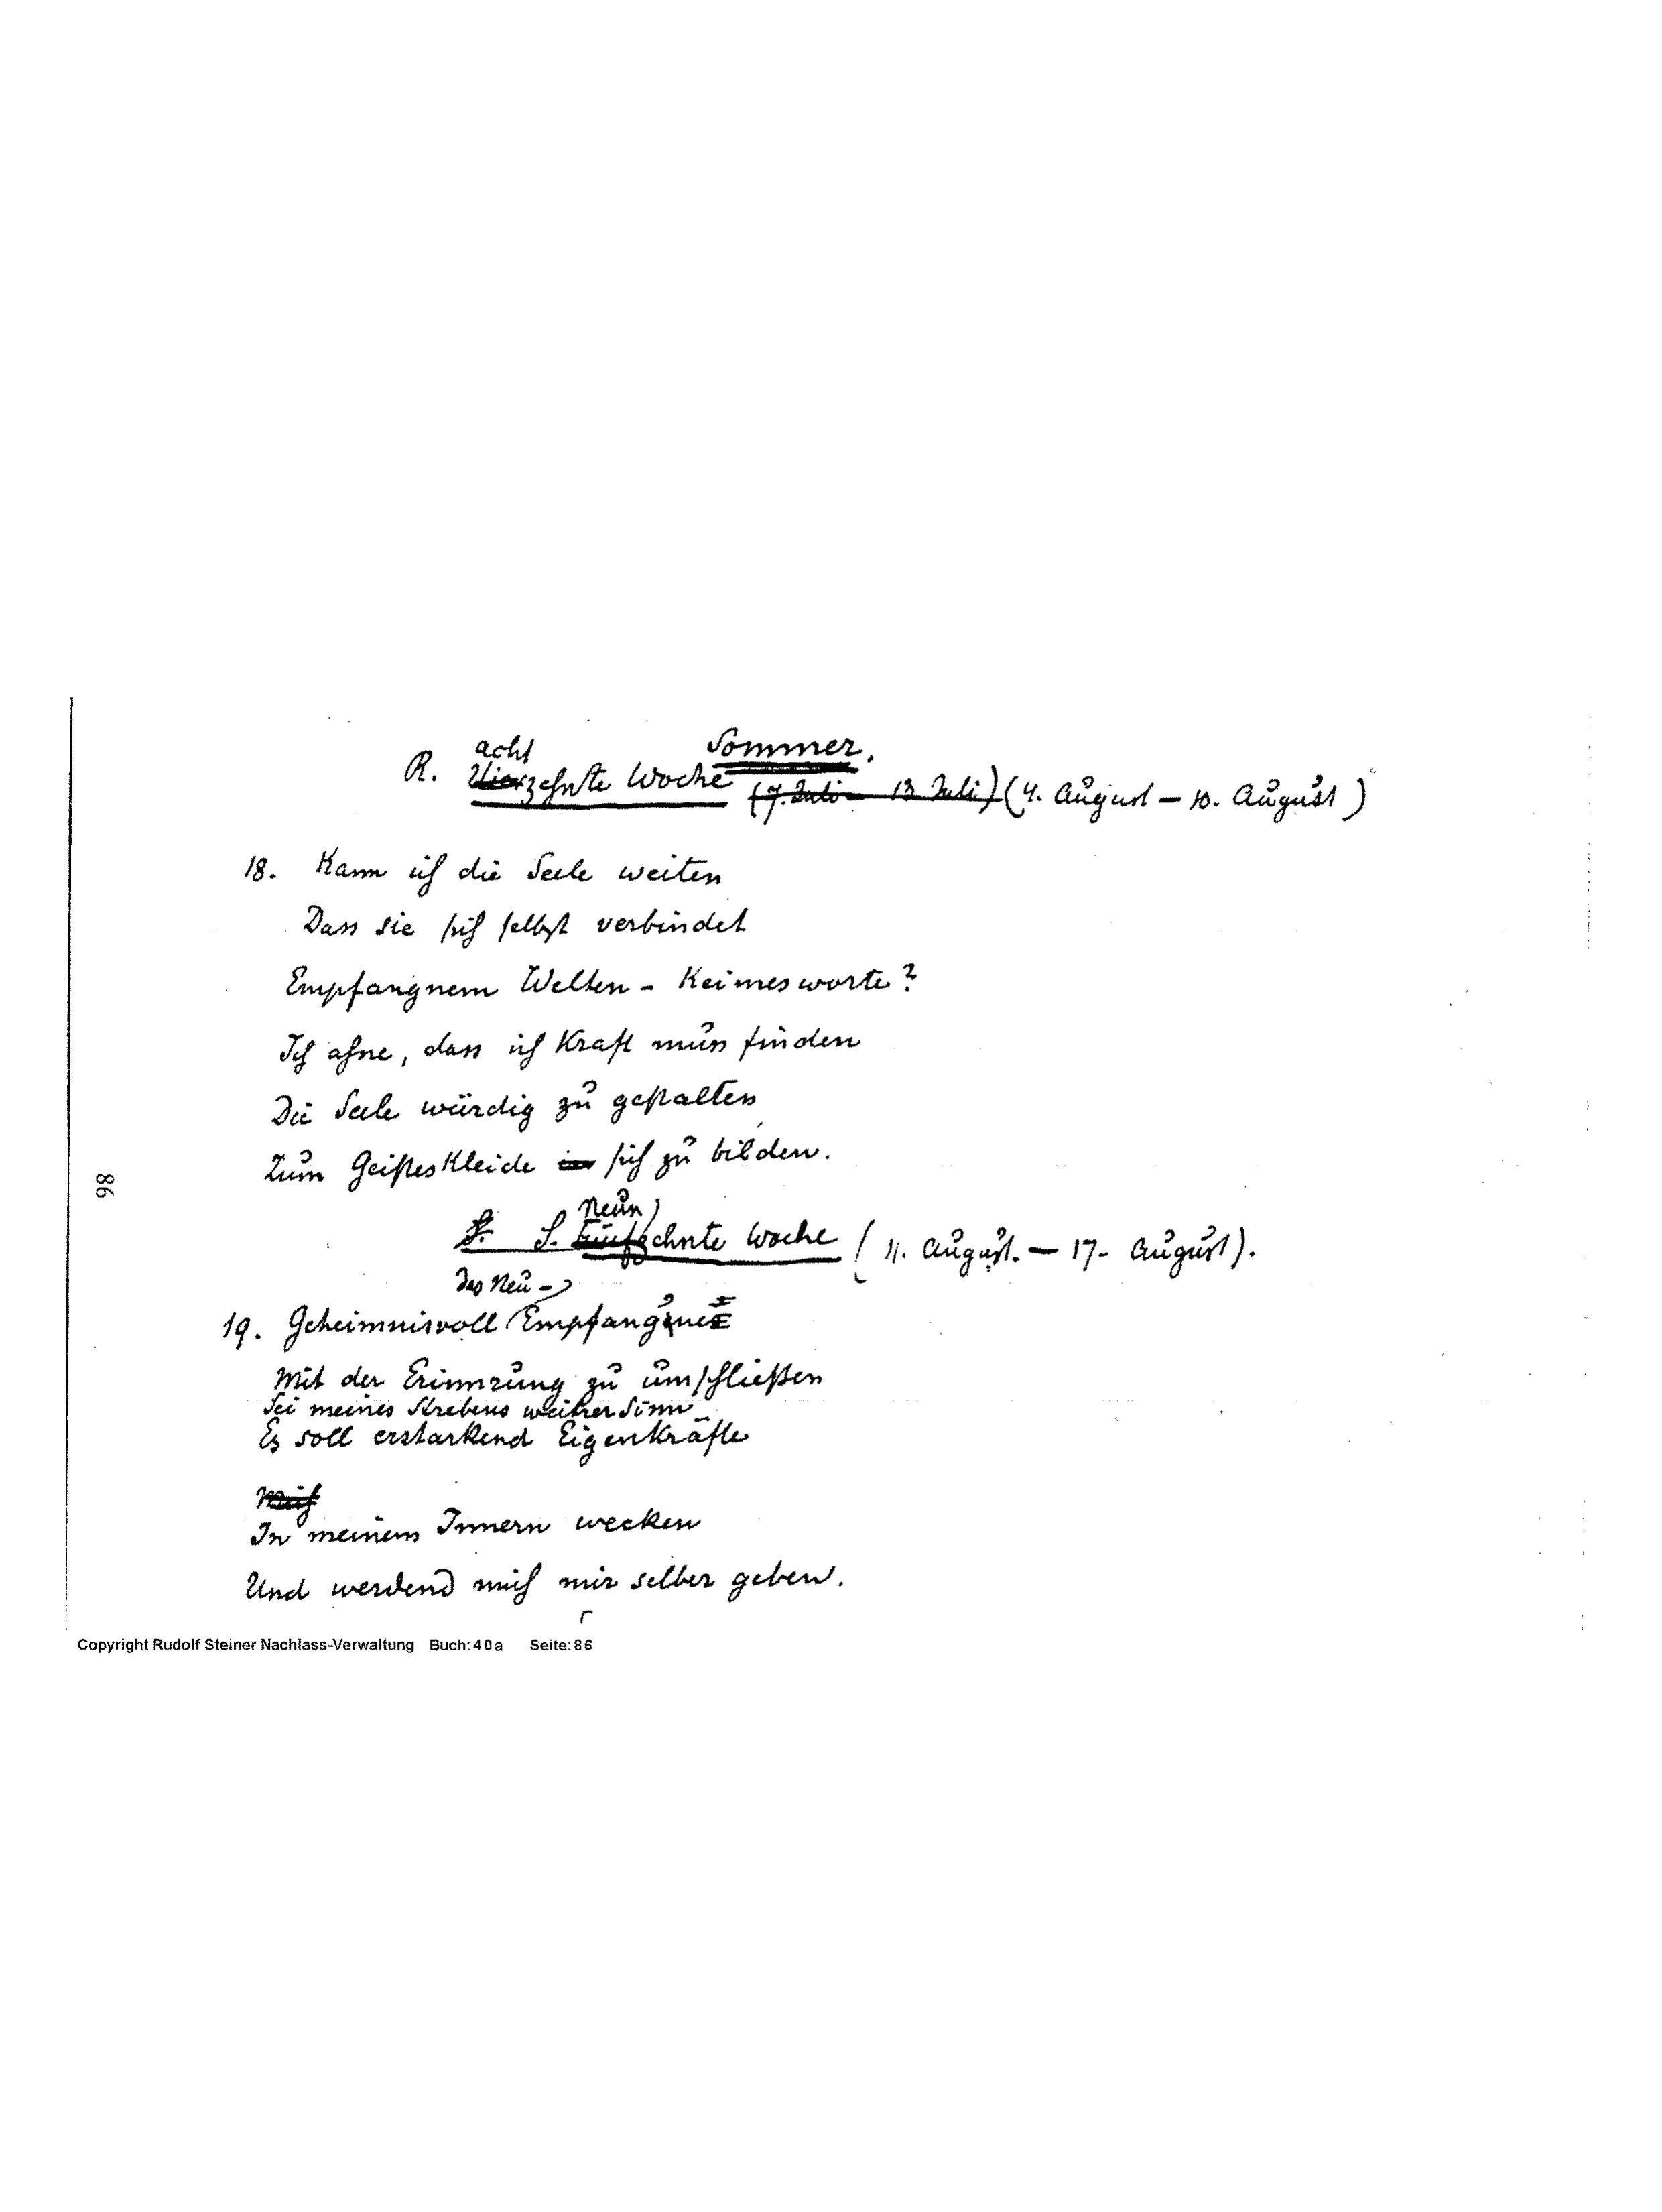 Sommer.
acht
R. Vierzehnte Woche (7. Juli – 13 Juli) (4. August – 10. August)
18. Kann ich die Seele weiten
Dass sie sich selbst verbindet
Empfangnem Welten - Keimesworte?
Ich ahne, dass ich Kraft muss finden
Die Seele würdig zu gestalten
Zum Geisteskleide sich zu bilden.
Neun
S. Fünfzehnte Woche (11. August. – 17. August).
das Neu-
19. Geheimnisvoll Empfangne
Mit der Erinnrung zu umschließen
Sei meines Strebens weitrer Sinn
Es soll erstarkend Eigenkräfte
Mich
In meinem Innern wecken
Und werdend mich mir selber geben.
86
Copyright Rudolf Steiner Nachlass-Verwaltung Buch: 40a Seite: 86